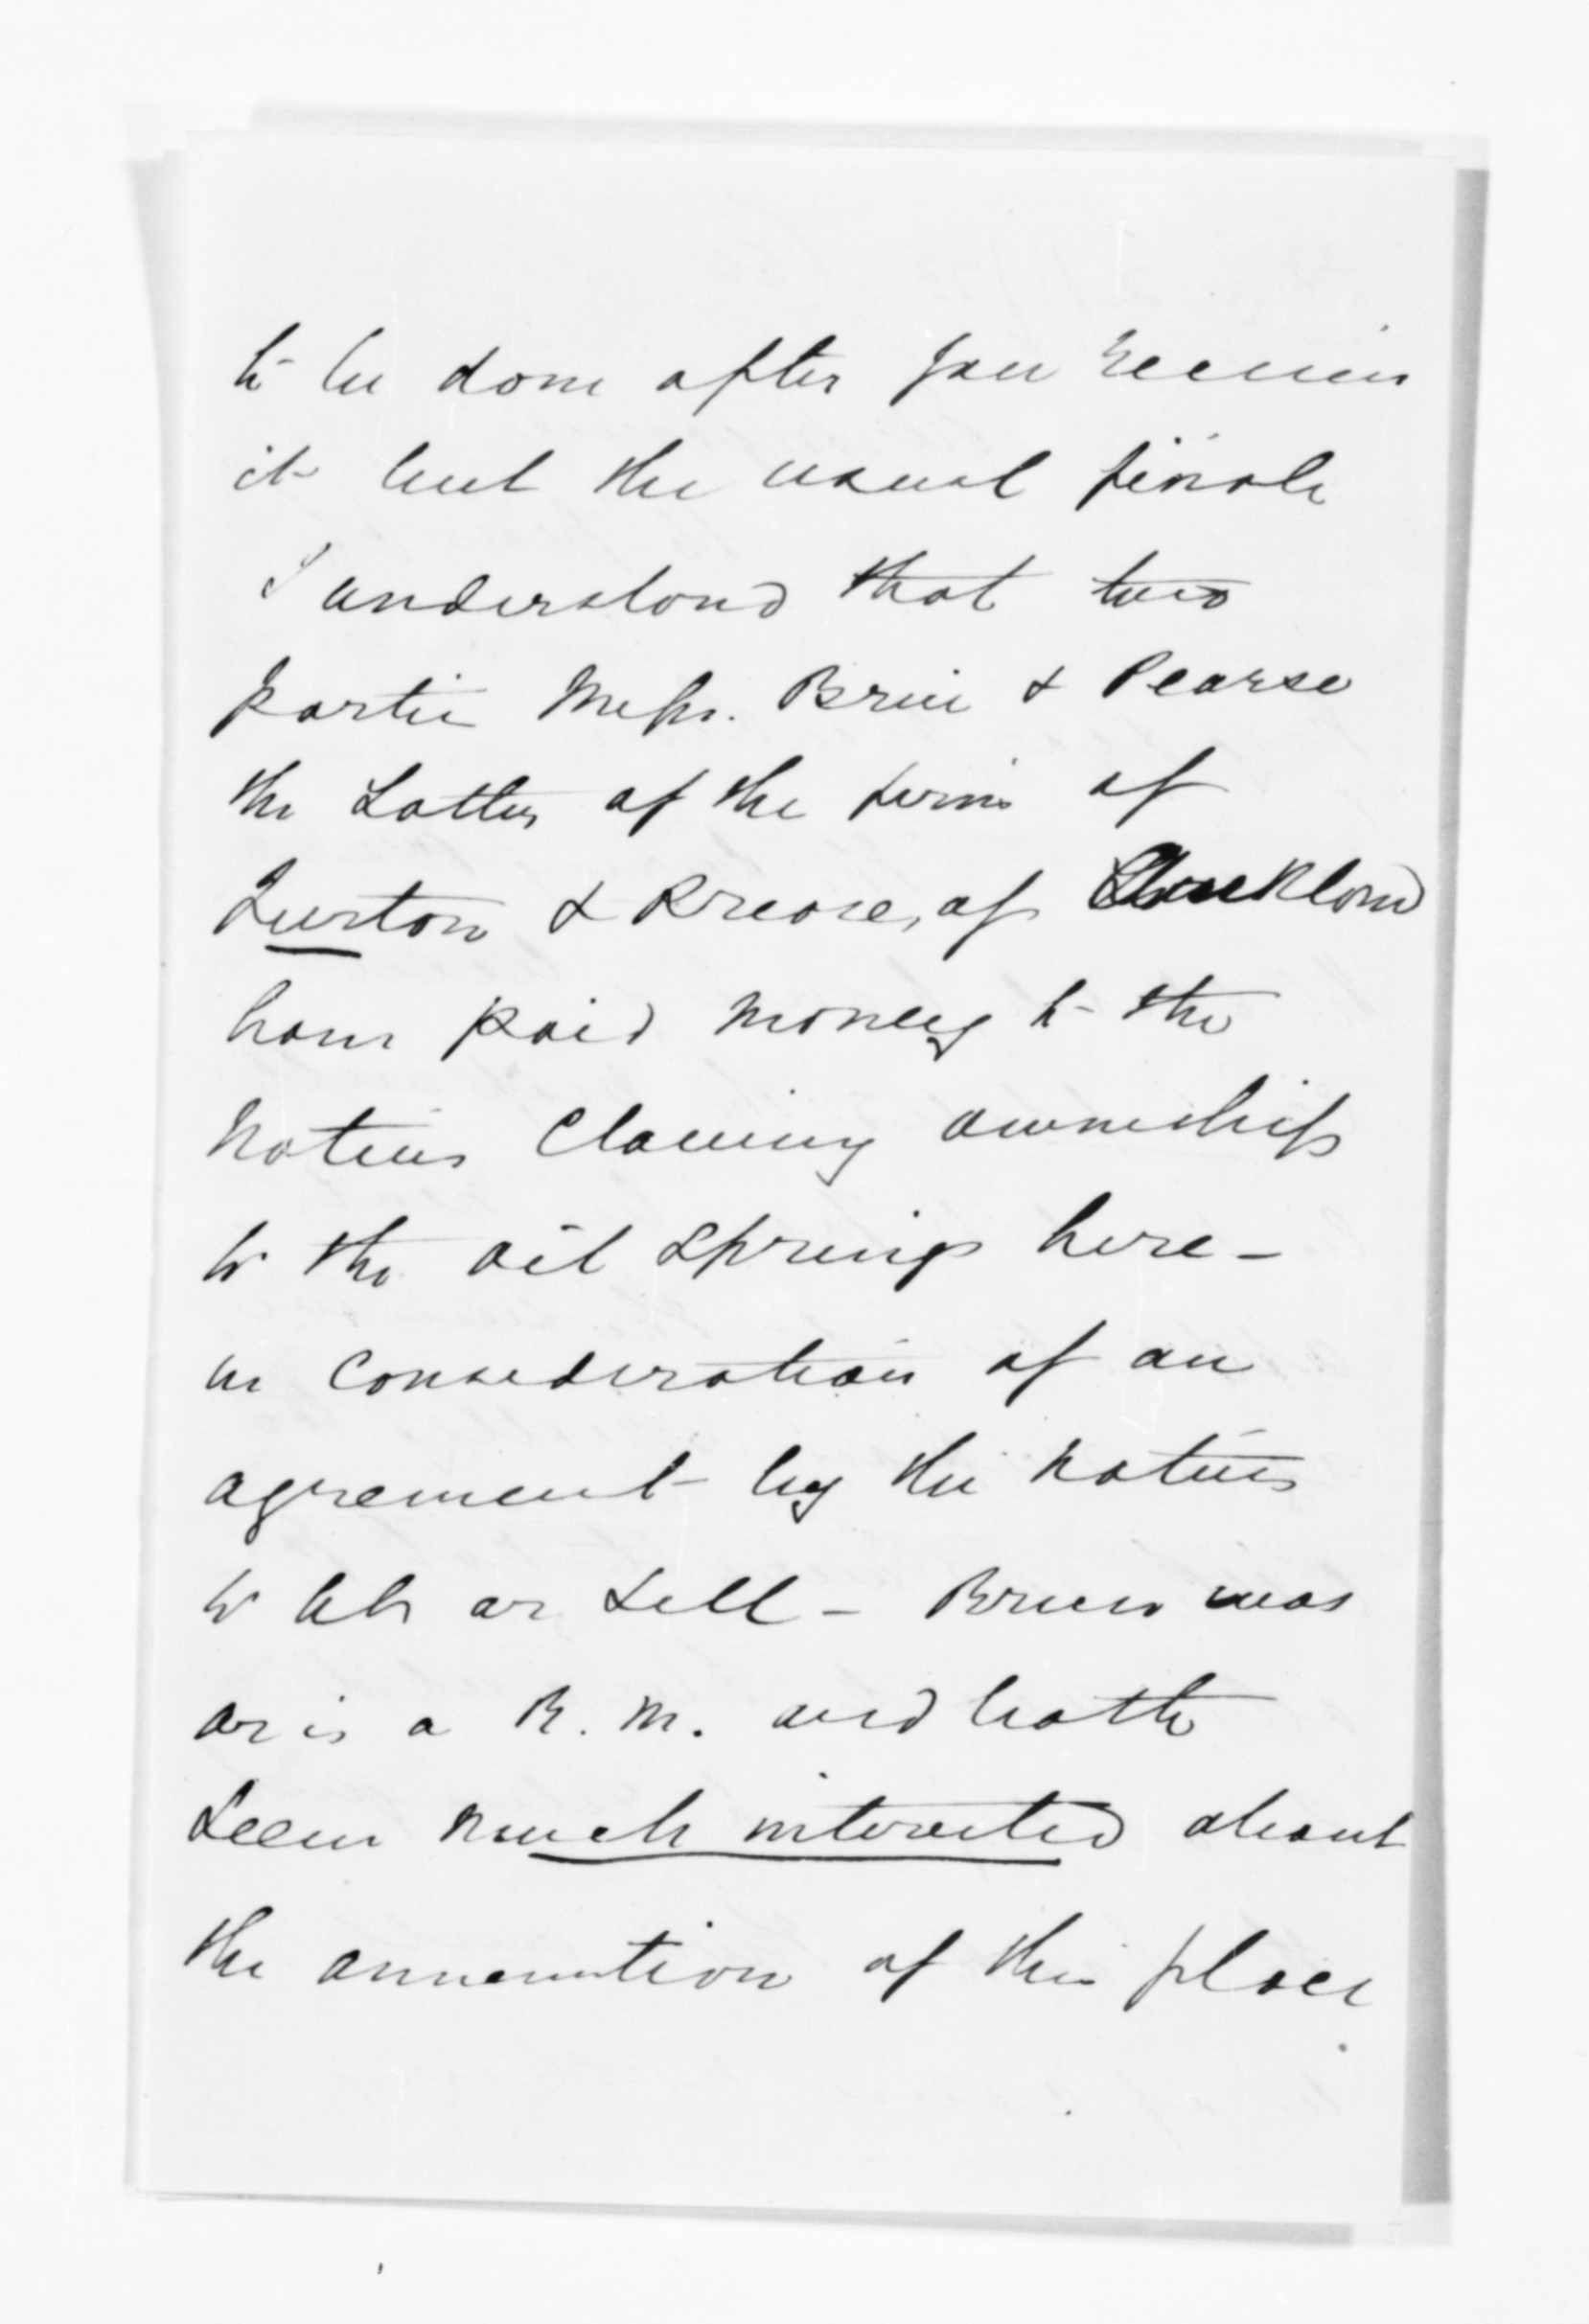 to be done after you receive
it but the usual finale
I understand that two
parties Messrs. Brice & Pearse
the Latter of the firm of
Turton & Pearse, of Auckland
have paid money to the
Natives Claiming ownership
to the oil Springs here -
in Consideration of an
agreement by the Natives
to let or Sell - Brice was
or is a R. M. and both
Seem much interested about
the annexation of this place